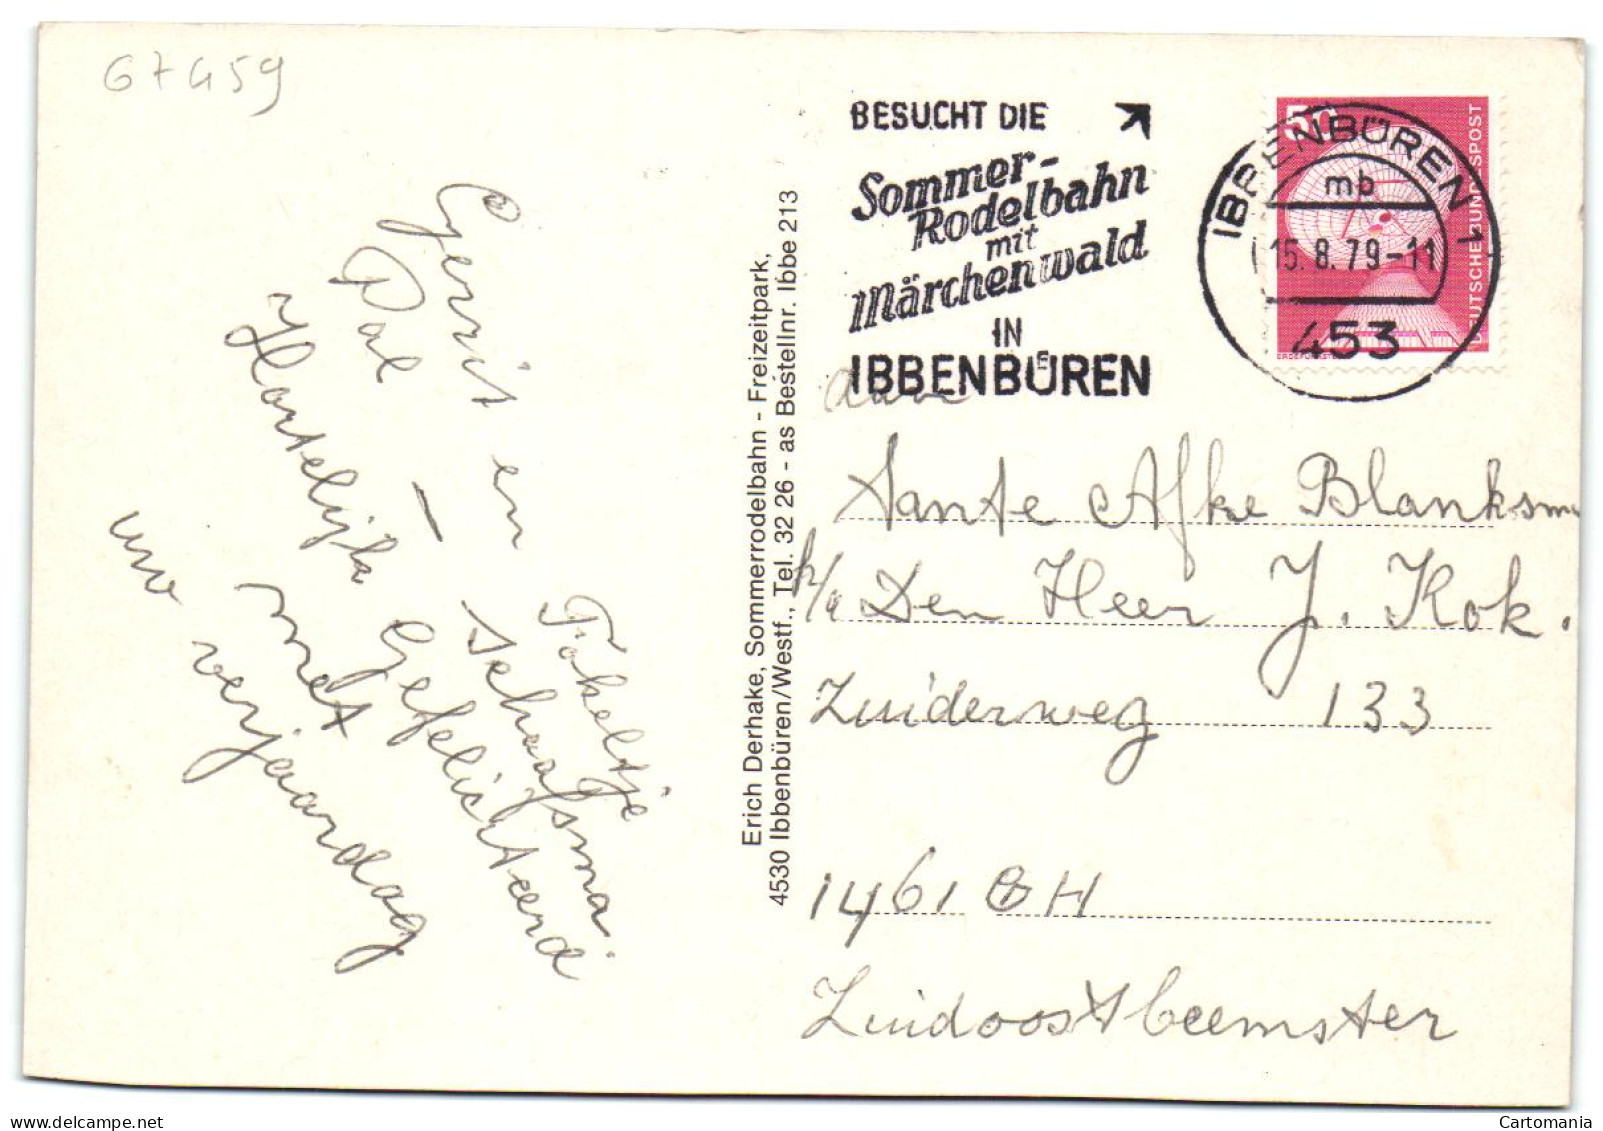 67459
BESUCHT DIE
Sommer-
Rodelbahn
mit
Märchenwald
IN
IBBENBÜREN
50
DEUTSCHE BUNDESPOST
IBBENBÜREN 1
mb
15.8.79-11
453
Gerrit en Fokeltje
Pal - Schaafsma.
Hartelijk Gefeliciteerd
met
uw verjaardag
Erich Derhake, Sommerrodelbahn - Freizeitpark,
4530 Ibbenbüren/Westf., Tel. 32 26 - as Bestellnr. Ibbe 213
aan
Tante Afke Blanksma
p/a Den Heer J. Kok.
Zuiderweg 133
1461 GH
Zuidoostbeemster
Cartomania